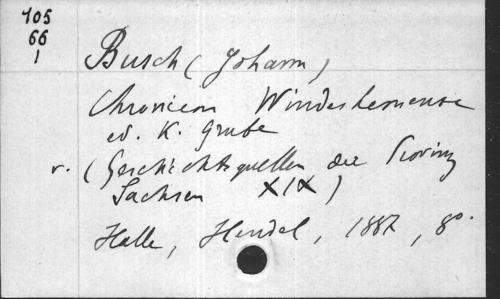 105
66
1
Busch (Johann)
Chronicon Windeshemense
ed. K. Grube
v. (Geschichtsquellen der Provinz
Sachsen XIX)
Halle, Hendel, 1887, 8°.